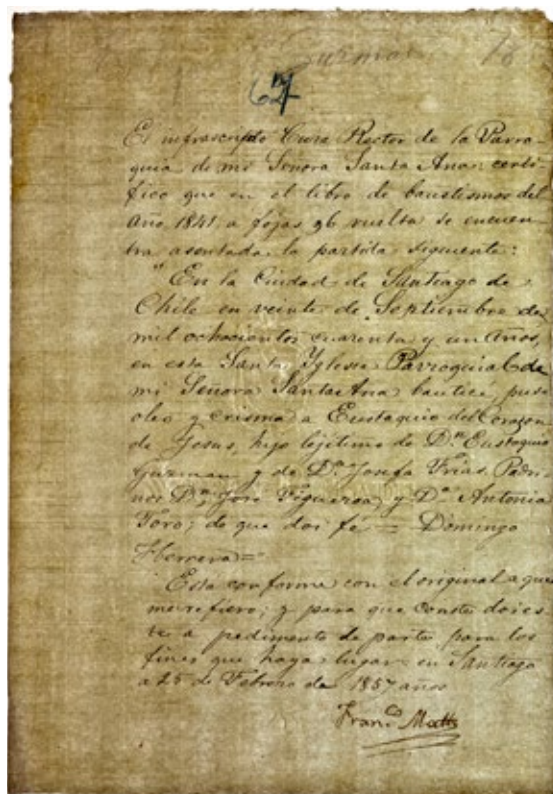 Guzman 78
67
El infrascripto Cura Rector de la Parro-
quia de mi Señora Santa Ana: certi-
fico que en el libro de baustismos del
año 1841 a fojas 96 vuelta se encuen-
tra asentada la partida siguiente:
"En la Ciudad de Santiago de
Chile en veinte de Septiembre de
mil ochocientos cuarenta y un años,
en esta Santa Yglesia Parroquial de
mi Señora Santa Ana bauticé, puse
oleo y crisma a Eustaquio del Corazon
de Jesus, hijo lejitimo de Dn Eustaquio
Guzman y de Da Josefa Frias. Padri-
nos Dn José Figueroa y Da Antonia
Toro; de que doi fé = Domingo
Herrera =
Esta conforme con el original a que
me refiero; y para que conste doi es-
te a pedimento de parte para los
fines que haya lugar en Santiago
a 25 de Febrero de 1857 años
Franco Matt